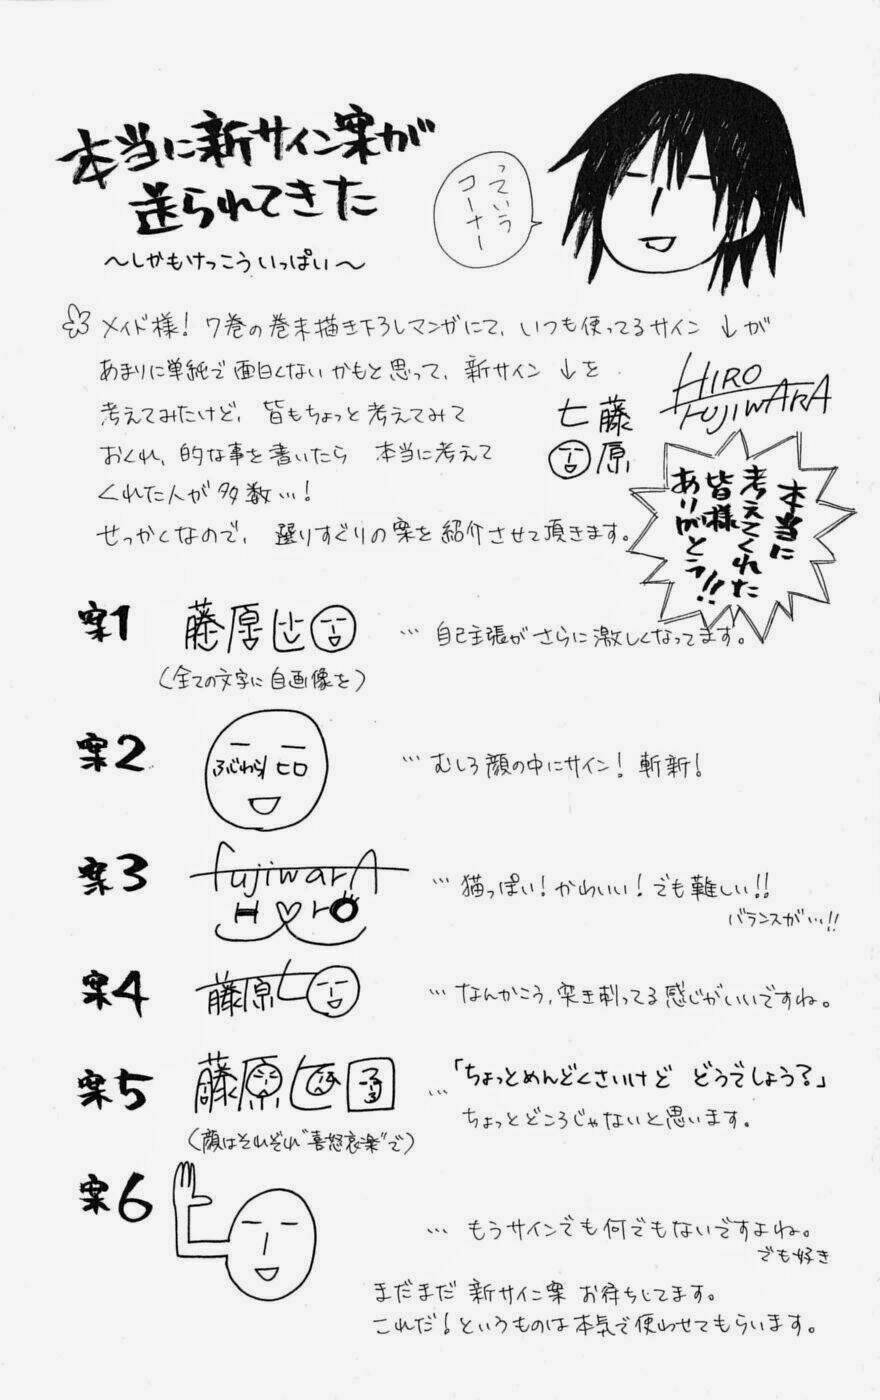 本当に新サイン案が
送られてきた
～しかもけっこういっぱい～
っていう
コーナー
メイド様！7巻の巻末描き下ろしマンガにて、いつも使ってるサイン↓が
あまりに単純で面白くないかもと思って、新サイン↓を
考えてみたけど、皆もちょっと考えてみて
おくれ、的な事を書いたら 本当に考えて
くれた人が多数…！
せっかくなので、選りすぐりの案を紹介させて頂きます。
HIRO
FUJIWARA
藤原
ヒ
本当に
考えてくれた
皆様
ありがとう！！
案1
藤原ヒロ
… 自己主張がさらに激しくなってます。
（全ての文字に自画像を）
案2
ふじわらヒロ
… むしろ顔の中にサイン！斬新！
案3
fujiwarA
H♡rO
… 猫っぽい！かわいい！でも難しい！！
バランスが…！！
案4
藤原ヒ
… なんかこう、突き刺ってる感じがいいですね。
案5
藤原ヒロ
… 「ちょっとめんどくさいけど どうでしょうる」
ちょっとどころじゃないと思います。
（顔はそれぞれ“喜怒哀楽”で）
案6
… もうサインでも何でもないですよね。
でも好き
まだまだ 新サイン案 お待ちしてます。
これだ！というものは本気で使わせてもらいます。